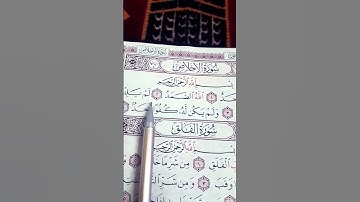 سُورَةُ الإِخْلَاصِ
سُورَةُ الإِخْلَاصِ
ٱللَّهِ ٱلرَّحْمَٰنِ ٱلرَّحِيمِ
ٱللَّهُ ٱلصَّمَدُ لَمْ يَلِ
وَلَمْ يَكُن لَّهُۥ كُفُوًا أَحَدٌ
سُورَةُ الفَلَقِ
ٱللَّهِ ٱلرَّحْمَٰنِ ٱلرَّحِيمِ
ٱلْفَلَقِ مِن شَرِّ مَا خَلَ
وَقَبَ وَمِن شَرِّ ٱلنَّ